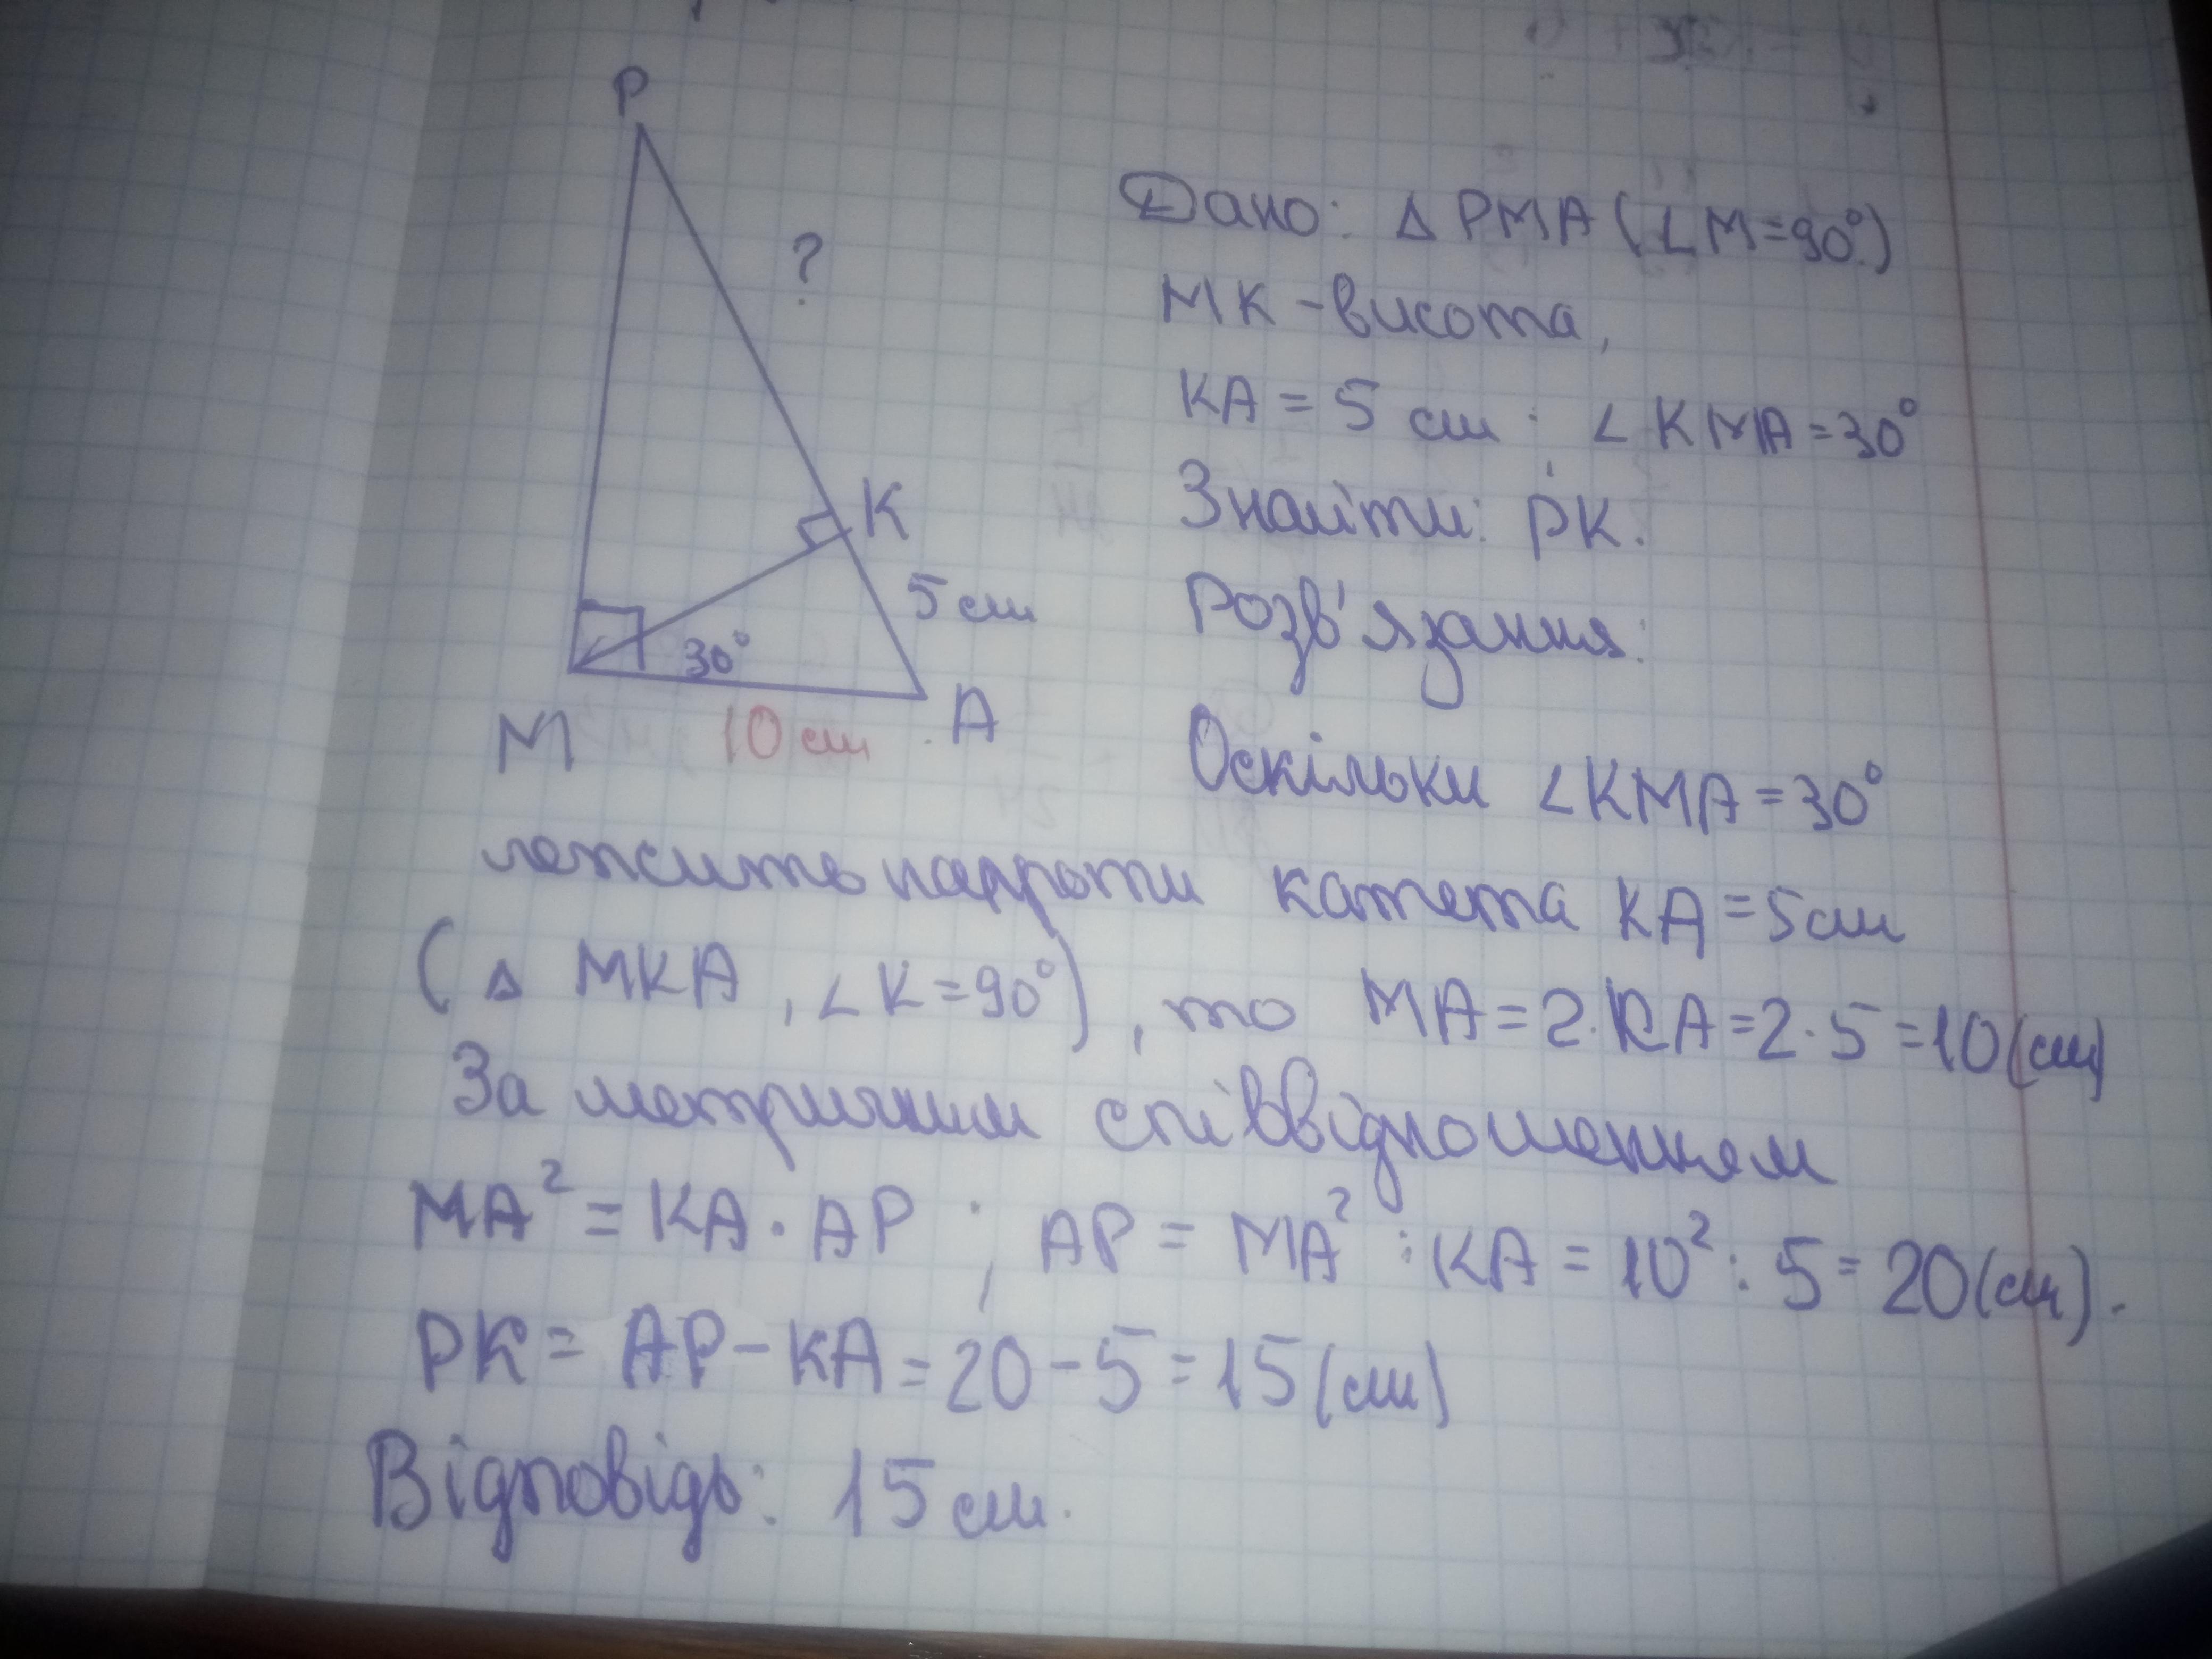 P
?
K
5 см
30°
M
10 см
A
Дано: △ PMA (∠M=90°)
MK - висота,
KA = 5 см ; ∠KMA=30°
Знайти: PK.
Розв'язання:
Оскільки ∠KMA=30°
лежить напроти катета KA=5см
(△ MKA, ∠K=90°), то MA=2·KA=2·5=10(см)
За метричним співвідношенням
MA² = KA · AP ; AP = MA² : KA = 10² : 5 = 20(см).
PK = AP - KA = 20 - 5 = 15 (см)
Відповідь: 15 см.